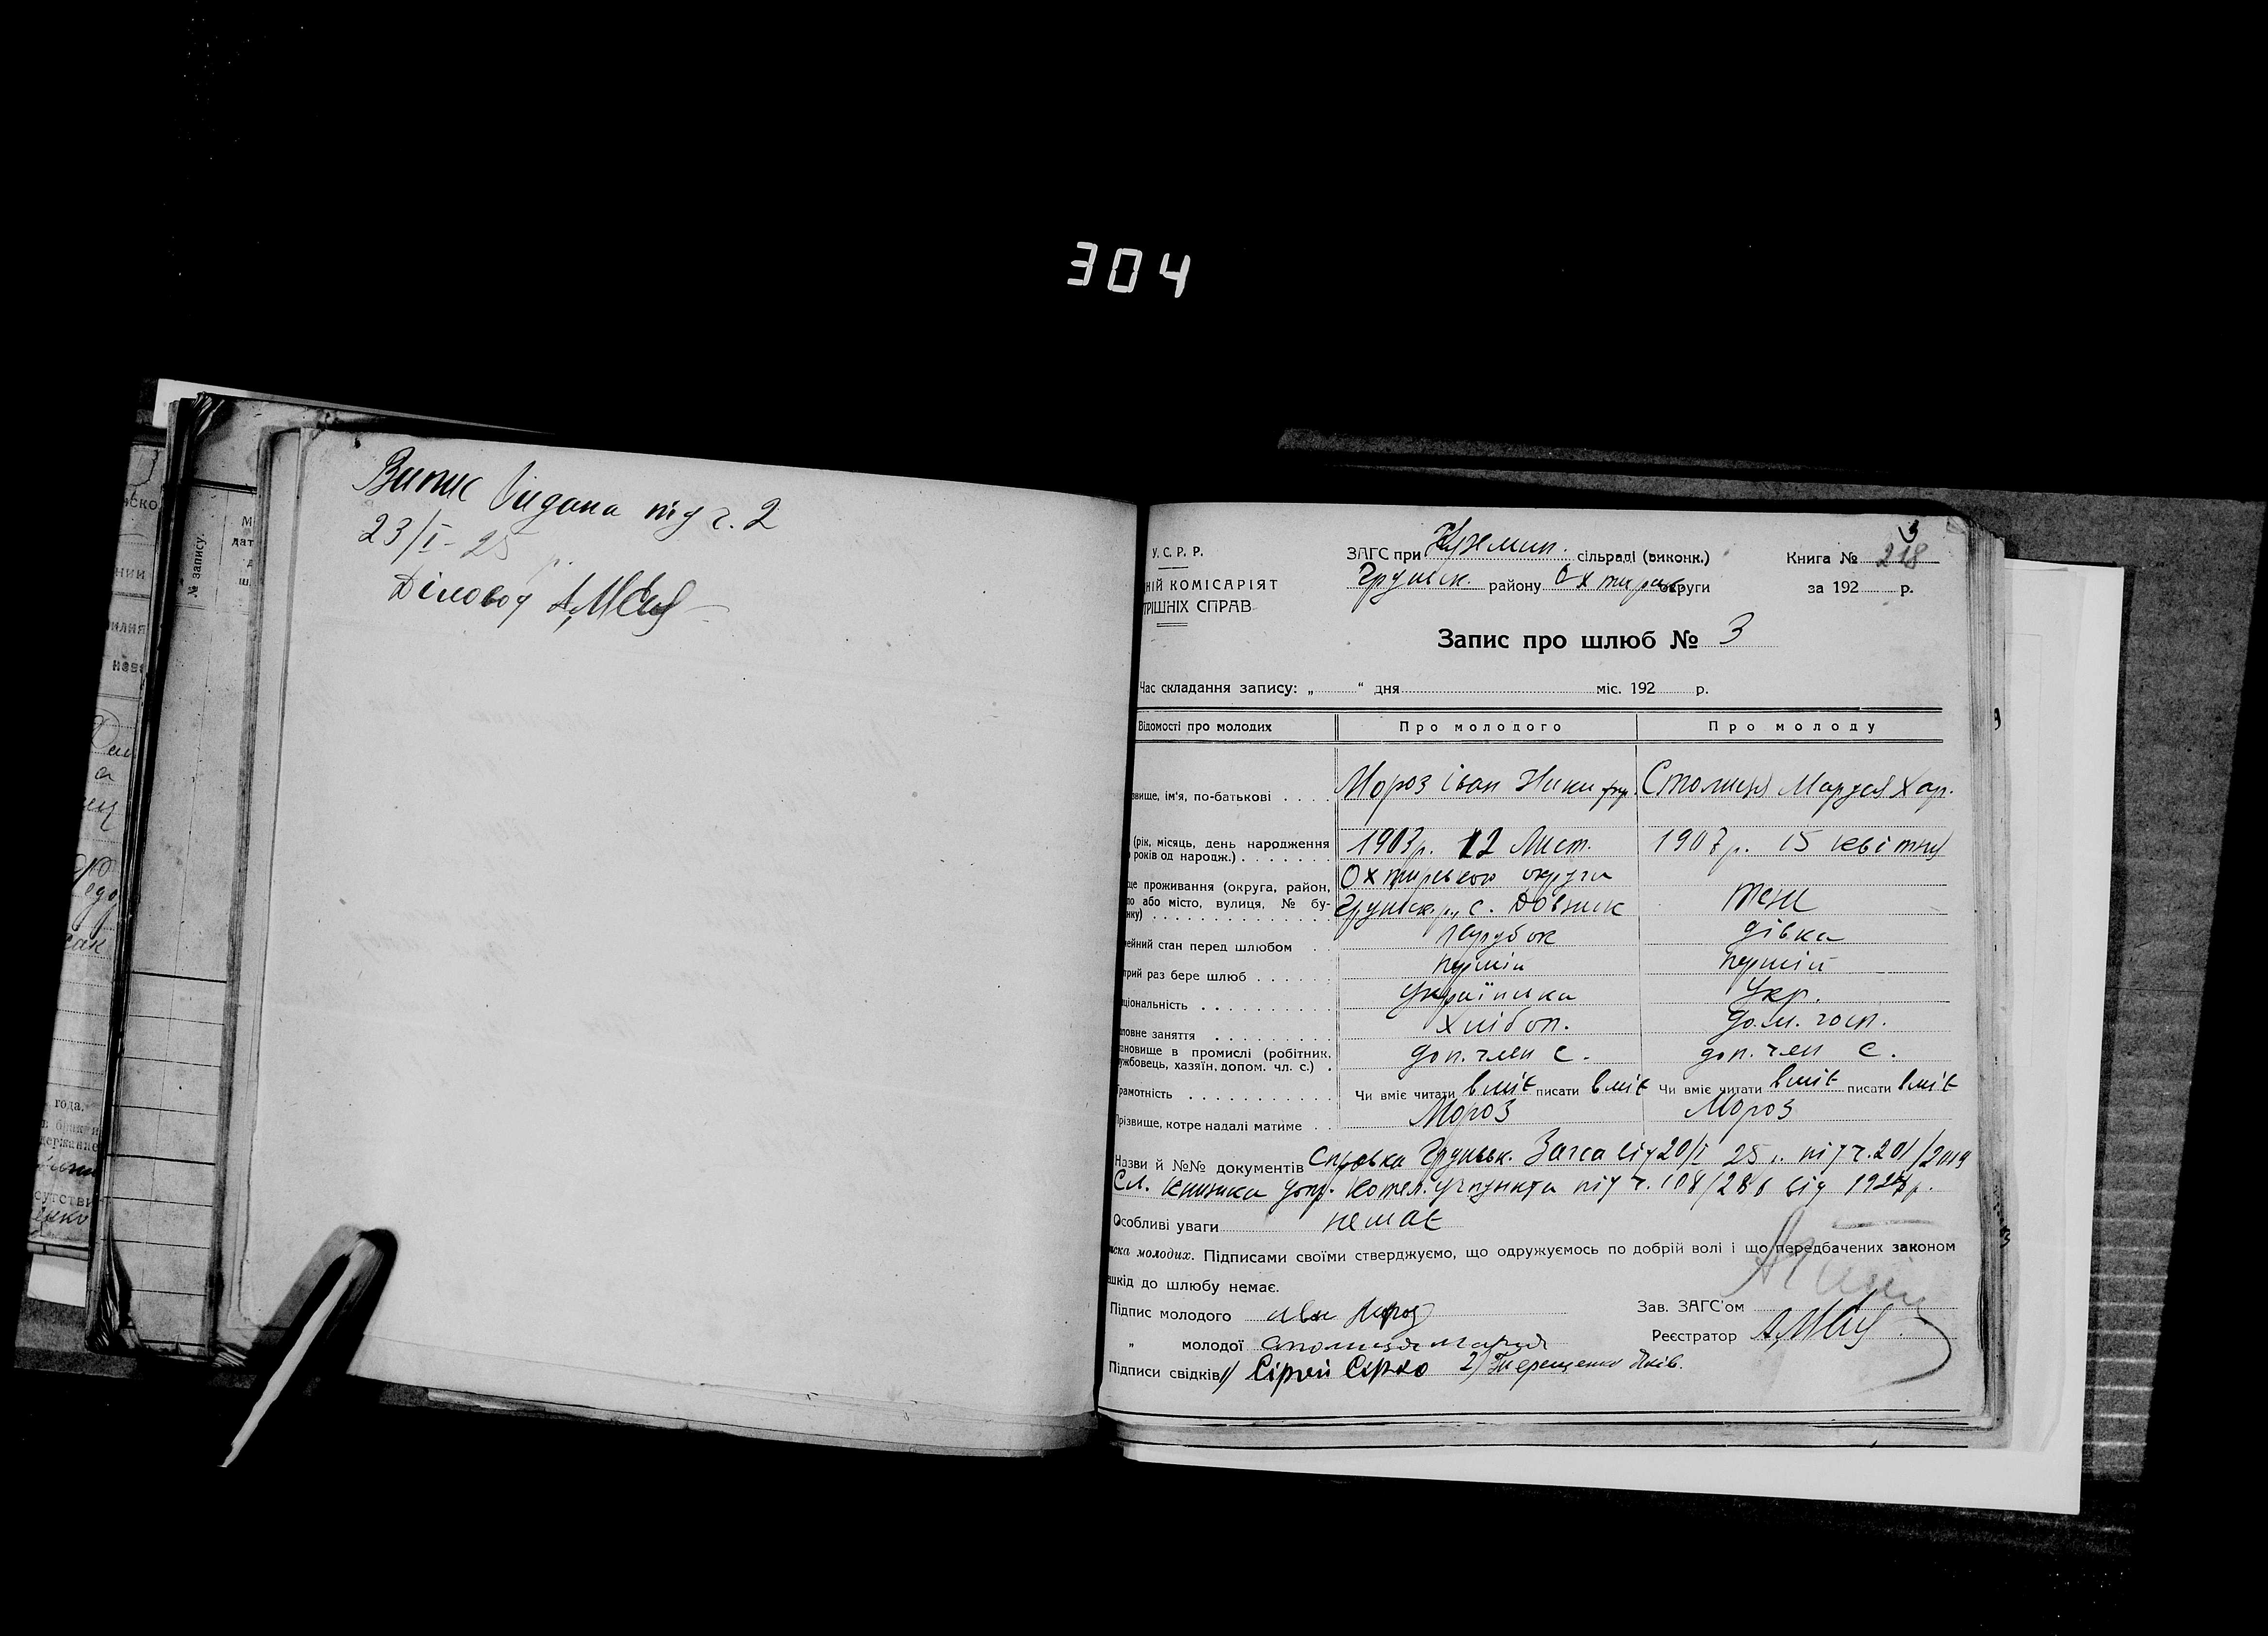 304
Випис видана під ч. 2
23/I - 25 р.
Діловод
У.С.Р.Р.
НІЙ КОМІСАРІЯТ
ТРІШНІХ СПРАВ
ЗАГС при сільраді (виконк.)
Грунськ. району Охтирськ. округи
Книга № 218
за 192 р.
3
Запис про шлюб № 3
Час складання запису: „ “ дня міс. 192 р.
Відомості про молодих Про молодого Про молоду
звище, ім'я, по-батькові Мороз Іван Ники Маруся Хар.
(рік, місяць, день народження 1903 р. 12 Лист. 1907 р. 15 квітня
років од народж.)
Охтирської округи
це проживання (округа, район,
ло або місто, вулиця, № бу- Грунськ. р., с. Довжик теж
нку)
ейний стан перед шлюбом парубок дівка
трий раз бере шлюб перший перший
ціональність Українська Укр.
ловне заняття Хлібоп. дом. госп.
новище в промислі (робітник, доп. член с. доп. член с.
ужбовець, хазяїн, допом. чл. с.)
рамотність Чи вміє читати вміє писати вміє Чи вміє читати вміє писати вміє
Прізвище, котре надалі матиме Мороз Мороз
Назви й №№ документів Справка Грунськ. Загса від 20/I 25 р. під ч. 201/2019
Сл. книжка під ч. 108/286 від 1924 р.
Особливі уваги немає
иска молодих. Підписами своїми стверджуємо, що одружуємось по добрій волі і що передбачених законом
ешкід до шлюбу немає.
Підпис молодого Іван Мороз
Зав. ЗАГС'ом
„ молодої
Реєстратор
Підписи свідків 1) Сірий Сірко 2) Терещенко Яків.
№ запису.
года.